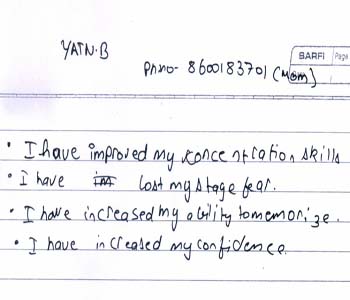 YATN.B
BARFI Page
Ph.no- 8600183701 (Mom)
• I have improved my concentration skills
• I have lost my stage fear.
• I have increased my ability to memorize.
• I have increased my confidence.